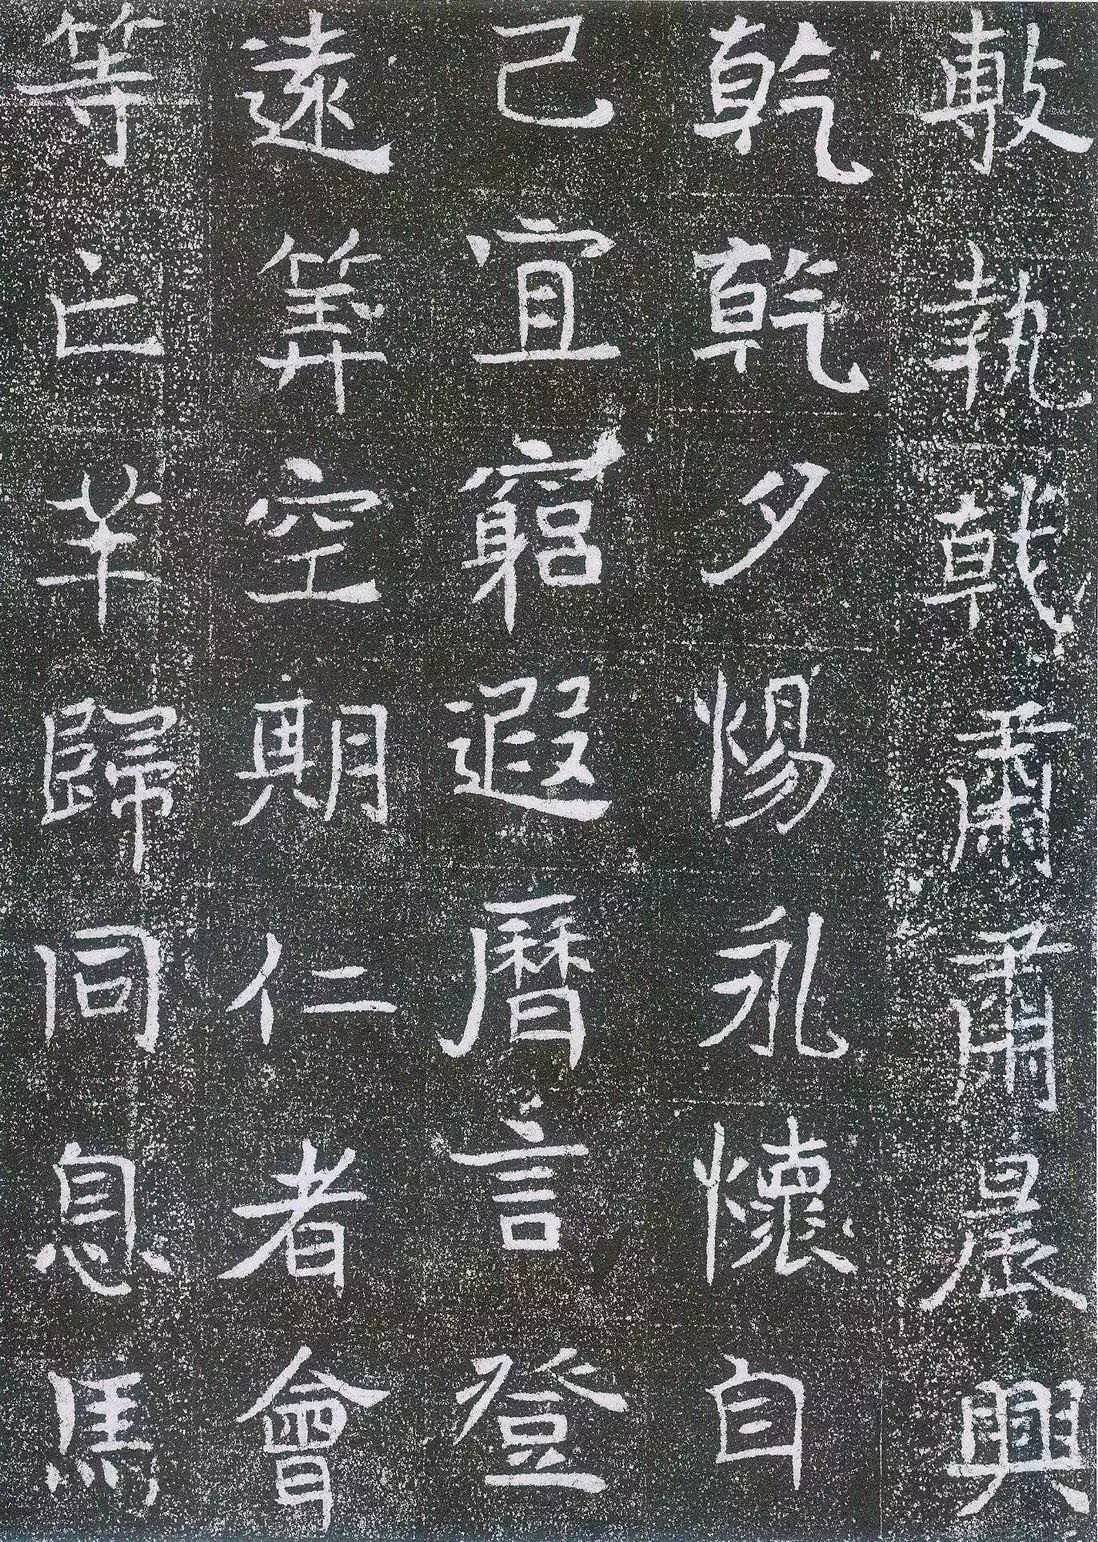 敷執戟肅肅晨興
乾乾夕惕永懷自
己宜竆遐曆言登
遠筭空期仁者會
等亡羊歸同息馬